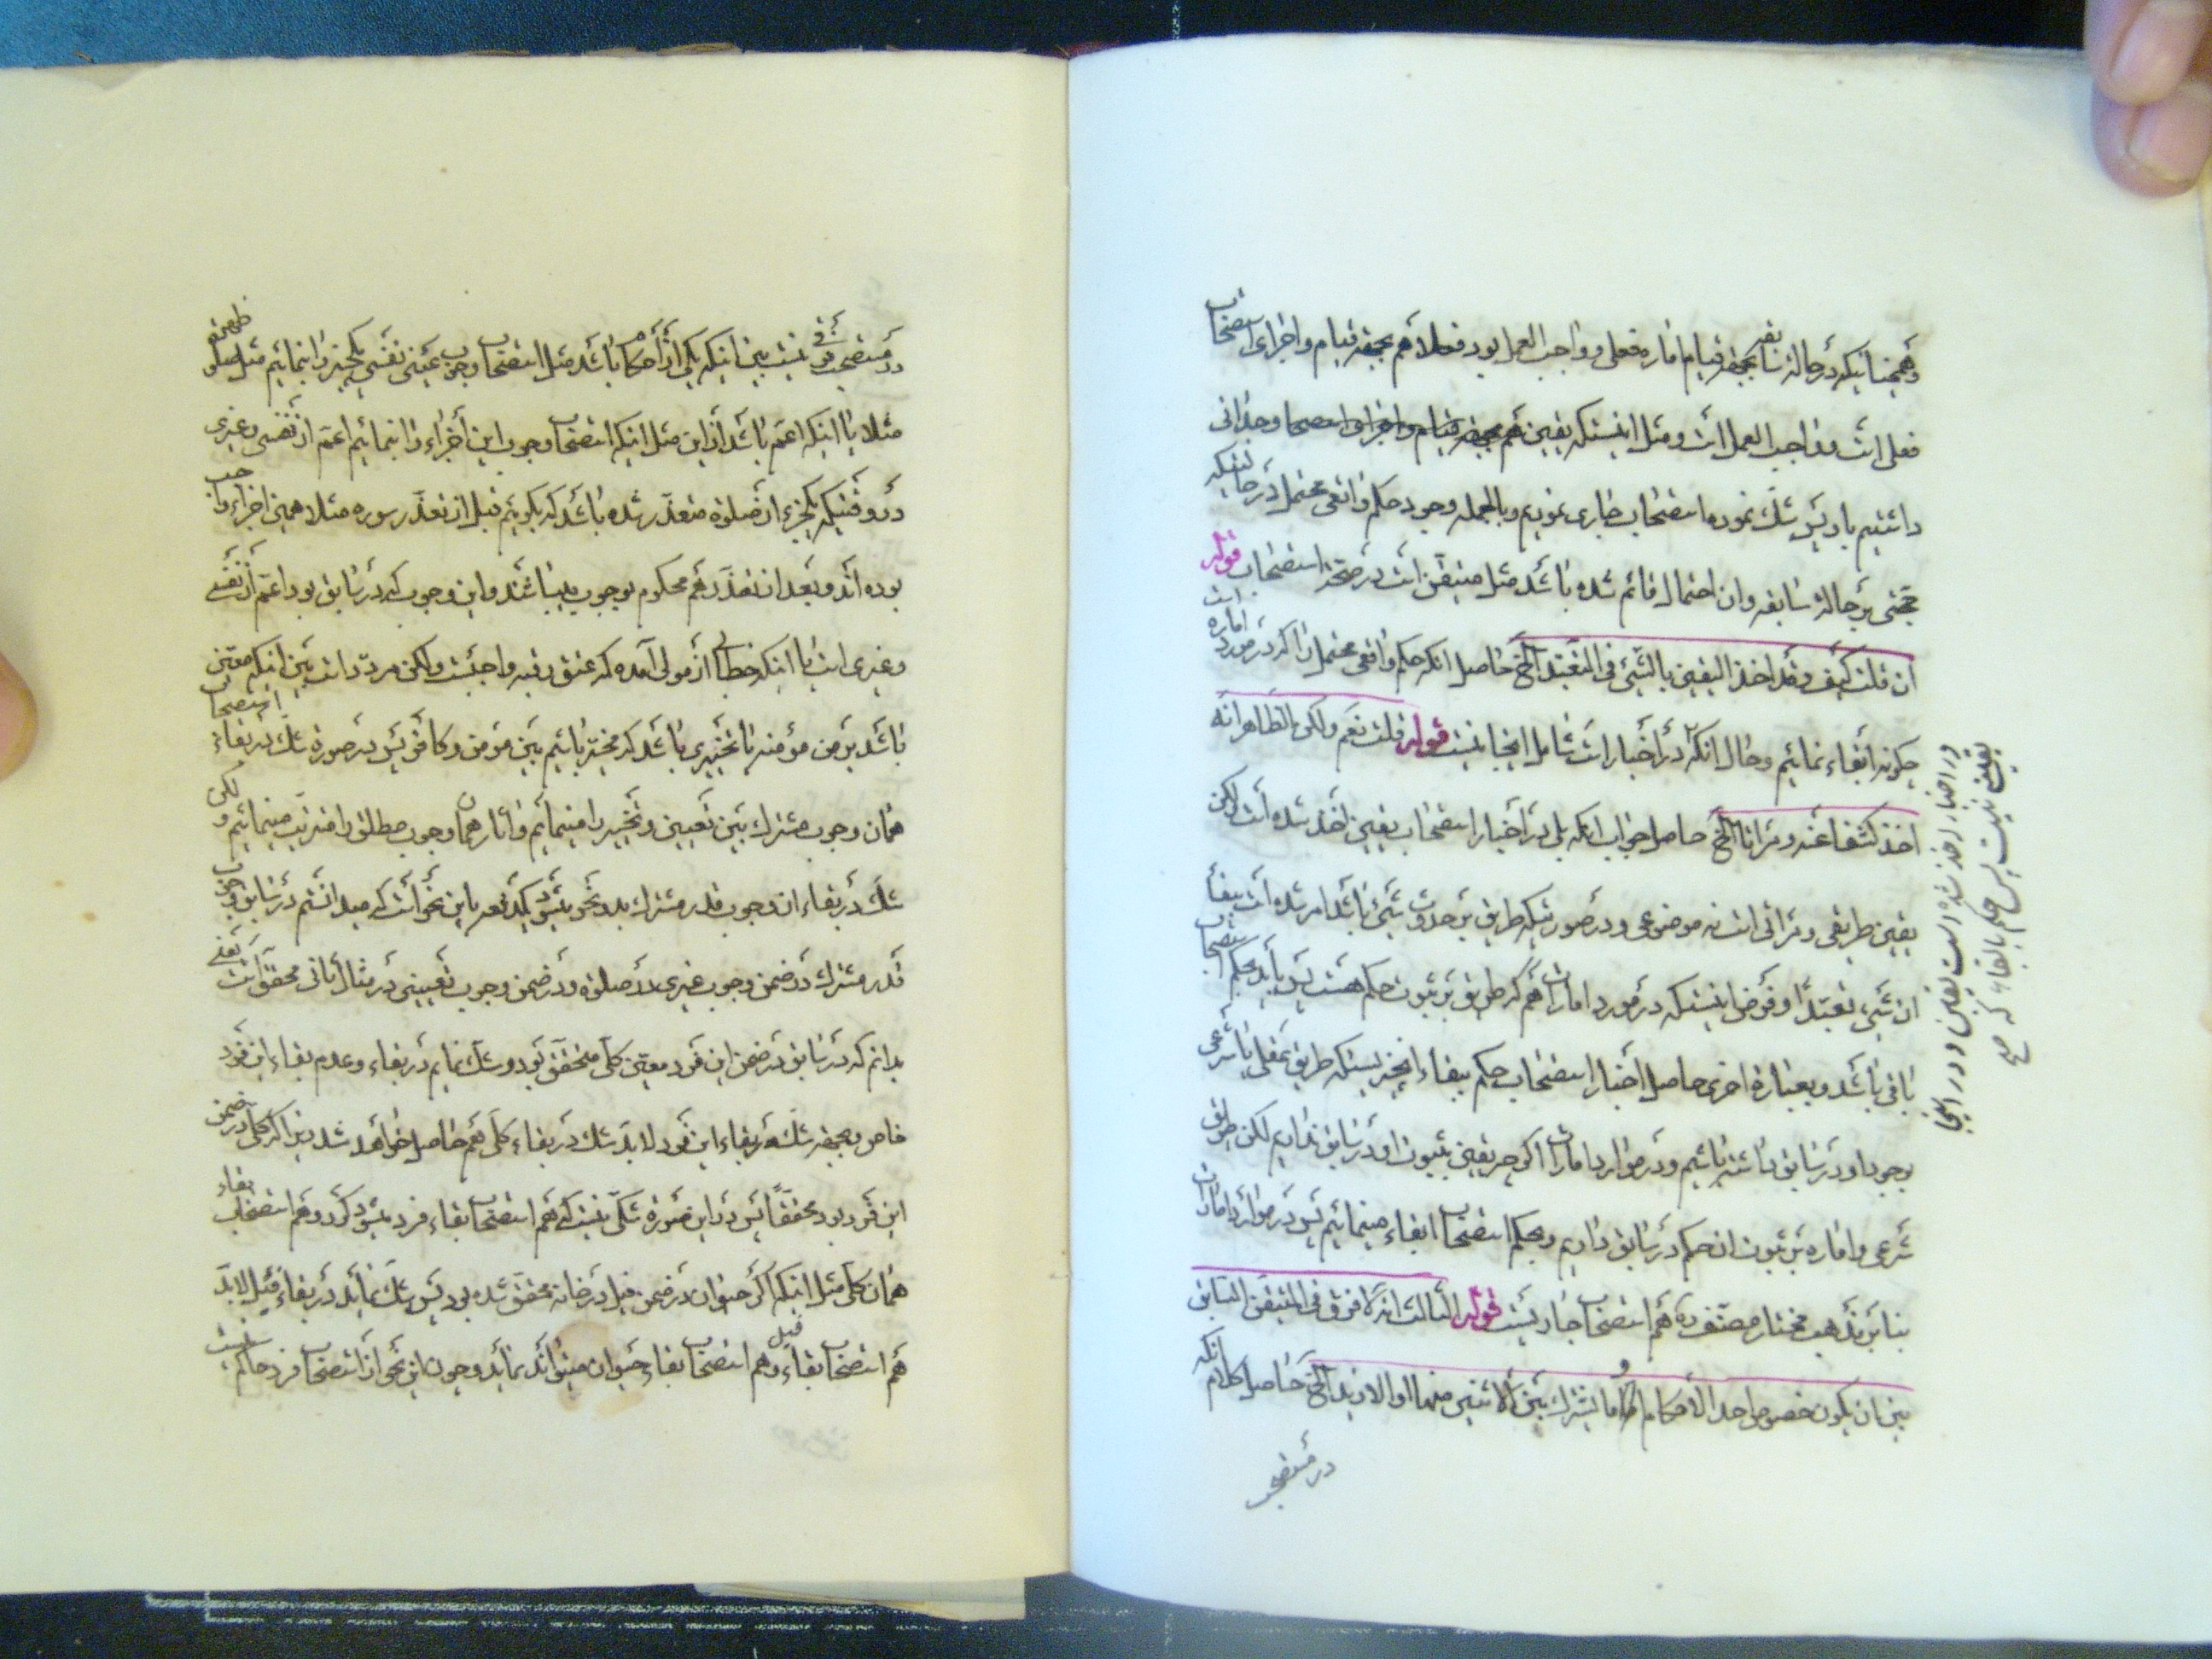 وهمچنانیکه در حالة سابقه بجهة قیام اماره فعلی و واجب العمل بود فعلا هم بجهة قیام و اجرای استصحاب
فعلی است و واجب العمل است و مثل اینستکه یقین هم بجهة قیام و اجرای استصحاب وجدانی
داشتیم باو پس شك نموده استصحاب جاری نمودیم و بالجمله وجود حکم واقعی محتمل در حالتیکه
حجتی بر حالة سابقه و ان احتمال قائم شده باشد مثل متیقن است در صحة استصحاب قوله
ان قلت کیف و قد اخذ الیقین بالشیئ فی التعبد الخ حاصل انکه حکم واقعی محتمل را که در مورد اماره است
چگونه ابقاء نمائیم و حال انکه در اخبار است شامل اینجا نیست قوله قلت نعم ولکن الظاهر انه
اخذ کشفا عنه و مراتا الخ حاصل جواب انکه بلی در اخبار استصحاب یقین اخذ شده است لکن
یقین طریقی و مراتی است نه موضوعی و در صورتیکه طریق بر حدوث شیئ باشد امر شده است ببقاء
ان شیئ تعبدا و فرض اینستکه در مورد امارات هم که طریق بر ثبوت حکم هست پس باید بحکم استصحاب
باقی باشد و بعبارة اخری حاصل اخبار استصحاب حکم ببقاء انچیزیستکه طریق عقلی یا شرعی
بوجود او در سابق داشته باشیم و در موارد امارات اگرچه یقین بثبوت او در سابق نداریم لکن طریق
شرعی و اماره بر ثبوت ان حکم در سابق داریم و بحکم استصحاب ابقاء مینمائیم پس در موارد امارات
بنا بر مذهب مختار مصنف ره هم استصحاب جاریست قوله الثالث انه لا فرق فی المتیقن السابق
بین ان یکون خصوص احد الاحکام او ما یشترك بین الاثنین منها او الازید الخ حاصل کلام انکه
در مستصحب
در اخبار اخذ شده است یقین و در اینجا
یقین نیست پس حکم بابقاء که صح
در مستصحب فرقی نیست بین اینکه یکی از احکام باشد مثل استصحاب وجوب عینی نفسی یکچیز را بنمائیم مثل صلوة ظهر
مثلا یا اینکه اعم باشد از این مثل اینکه استصحاب وجوب این اجزاء را بنمائیم اعم از نفسی و غیری
در وقتیکه یکجزء از صلوة متعذر شده باشد که بگوئیم قبل از تعذر سوره مثلا همین اجزاء واجب
بوده اند و بعد از تعذر هم محکوم بوجوب میباشند و این وجوب که در سابق بود اعم از نفسی
و غیری است یا اینکه خطابی از مولی آمده که عتق رقبه واجبست ولکن مردد است بین اینکه معین
باشد بر من مؤمنه یا تخییری باشد که مخیر باشیم بین مؤمن و کافر پس در صورة شك در بقاء استصحاب
همان وجوب مشترك بین تعیین و تخییر را مینمائیم و اثار همان وجوب مطلق را مترتب مینمائیم و لکن
شك در بقاء ان وجوب قدر مشترك بدو نحو میشود یکدفعه باین نحو است که میدانستم در سابق وجوب
قدر مشترك در ضمن وجوب غیری لاصلوة و در ضمن وجوب تعیینی در مثال ثانی محقق است یعنی
بدانم که در سابق در ضمن این فرد معین کلی متحقق بود و شك نمایم در بقاء و عدم بقاء این فرد
خاص و بجهة شك در بقاء این فرد لابد شك در بقاء کلی هم حاصل خواهد شد زیرا که کلی در ضمن
این فرد بود محققا پس در این صورة شکی نیست که هم استصحاب بقاء فرد میشود کرد و هم استصحاب بقاء
همان کلی مثل اینکه اگر حیوان در ضمن فیل در خانه محقق شده بود پس شك نماید در بقاء فیل لابد
هم استصحاب بقاء فیل و هم استصحاب بقاء حیوان میتواند نماید و چون این نحو از استصحاب فرد حاکم است